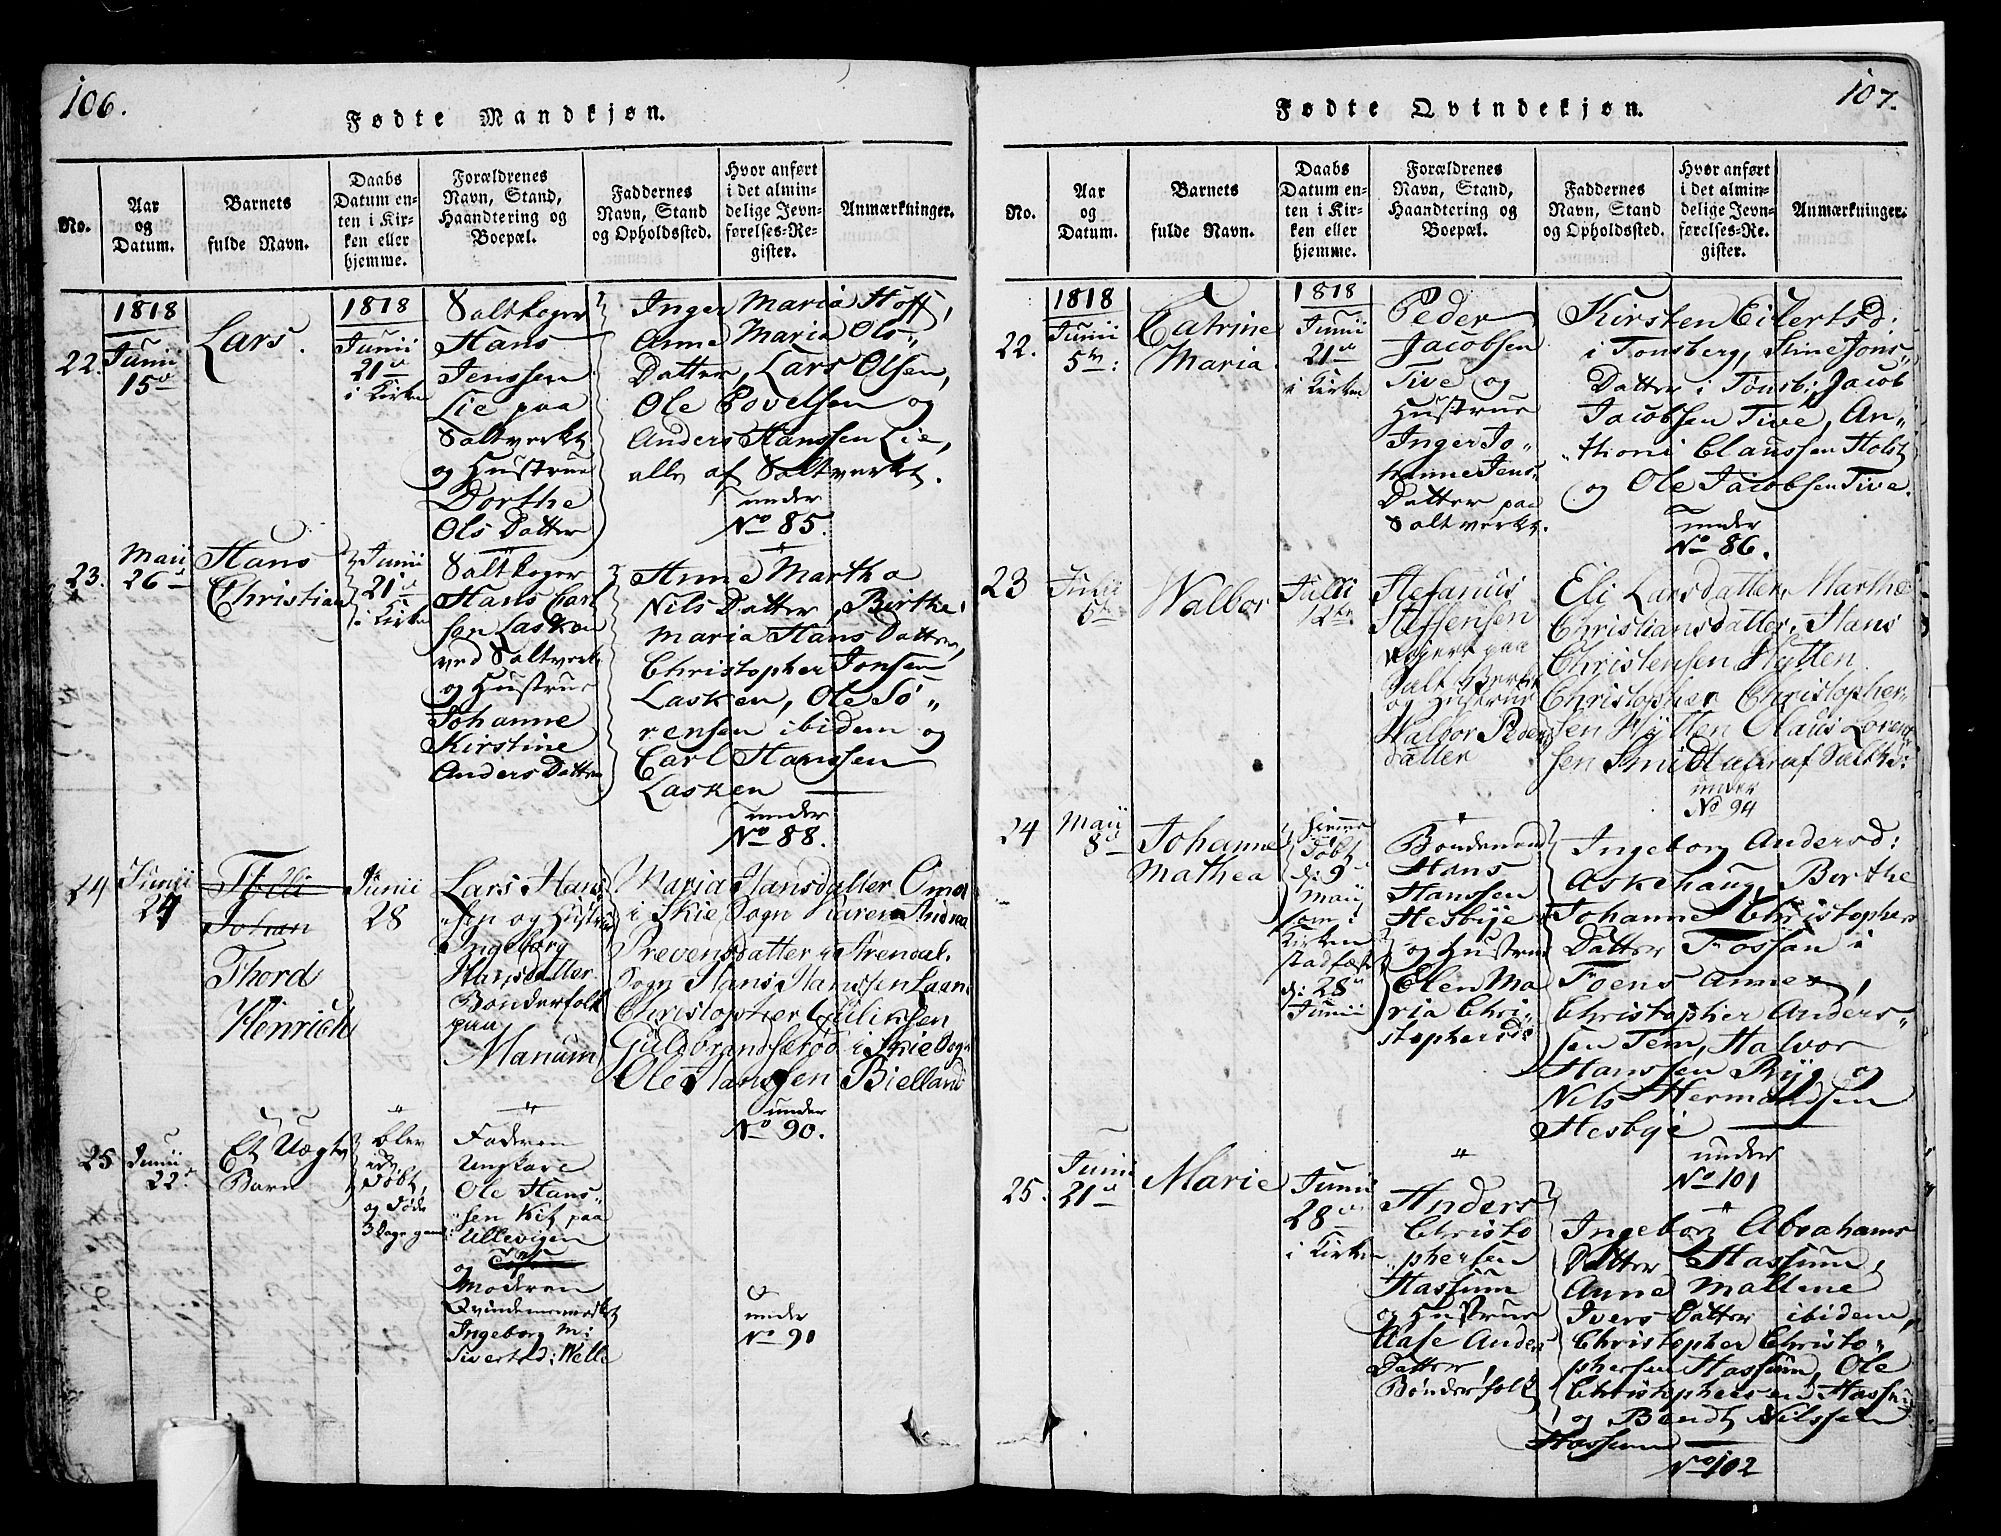 106.
Fødte Mandkjøn.
No.
Aar
og
Datum.
Barnets
fulde Navn.
Daabs
Datum en-
ten i Kir-
ken eller
hjemme.
Forældrenes
Navn, Stand,
Haandtering og
Boepæl.
Faddernes
Navn, Stand
og Opholdssted.
Hvor anført
i det almin-
delige Jevn-
førelses-Re-
gister.
Anmærkninger.
22.
1818
Junii
15de
Lars.
1818
Junii
21de
i Kirken
Saltkoger
Hans
Jenssen
Lie paa
Saltverket
og Hustrue
Dorthe
Ols Datter
Inger Maria Hoff,
Anne Maria Ols„
Datter, Lars Olsen,
Ole Povelsen og
Anders Hanssen Lie,
alle af Saltverket.
under
No 85.
23.
Maii
26
Hans
Christian
Junii
21de
i Kirken
Saltkoger
Hans Carl
sen Lasken
ved Saltverk
og Hustrue
Johanne
Kirstine
Anders Datter
Anne Martha
Nils Datter, Birthe
Maria Hans Datter,
Christopher Jonsen
Lasken, Ole Sö„
rensen ibidem og
Carl Hanssen
Lasken
under
No 88.
24
Junii
24
Johan
Thord
Henrich
Junii
28
Lars Hans
„sen og Hustrue
Ingeborg
Hansdatter
Bønderfolk
paa
Manum
Maria Hansdatter
i Skie Sogn
Sogn Hans Hanssen
Christopher Gulliksen
i Skie Sogn
Ole Hanssen Bielland
under
No 90.
25
Junii
22
Et Uægte
Barn
blev
ei
Døbt,
og Døde
3 Dage gam:
Faderen
Ungkarl
Ole Hans„
„sen Kit paa
Ullevigen
og
Moderen
Qvindemennesket
Ingeborg M:
Sivertsd: Welle
under
No 91
107.
Fødte Qvindekjøn.
No.
Aar
og
Datum.
Barnets
fulde Navn.
Daabs
Datum en-
ten i Kir-
ken eller
hjemme.
Forældrenes
Navn, Stand,
Haandtering og
Boepæl.
Faddernes
Navn, Stand
og Opholdssted.
Hvor anført
i det almin-
delige Jevn-
førelses-Re-
gister.
Anmærkninger.
22.
1818
Junii
5te:
Catrine
Maria
1818
Junii
21de
i Kirken
Peder
Jacobsen
Tive og
Hustrue
Inger Jo„
hanne Jens„
Datter paa
Saltverkt.
Kirsten Eilertsd:
i Tonsberg, Stine Jons„
Datter i Tønsb:, Jacob
Jacobsen Tive, An„
„thoni Claussen Holst
og Ole Jacobsen Tive.
under
No 86.
23
Julii
5te
Walbor
Julii
12te
Stefanus
Steffensen
paa
Salt Verket
og Hustrue
Walbor Peders
datter
Eli Larsdatter, Marthe
Christiansdatter, Hans
Christensen Hytten
Christopher Christopher„
sen Hytten Olaus Lorent
sen Smidt alle af Saltv:
under
No 94
24
Maii
8de
Johanne
Mathea
hiemme
Døbt
d: 9de
Maii
som i
Kirken
stadfæst
d: 28de
Junii
Bondemand
Hans
Hanssen
Hesbye
og Hustrue
Elen Ma
ria Chri„
stophersd:
Ingeborg Andersd:
Askehaug, Berthe
Johanne Christophers
Datter Fossan i
Foens Annex,
Christopher Anders„
sen Tem, Halvor
Hanssen Ryg og
Nils Hermandsen
Hesbye
under
No 101
25.
Junii
21de
Marie
Junii
28de
i Kirken
Anders
Christo
„phersen
Hassum
og Hustrue
Aase Anders
Datter,
Bønderfolk
Ingeborg Abrahams
Datter Hassum,
Anne Mallene
Ivers Datter ibidem,
Christopher Christo„
phersen Hassum, Ole
Christophersen Hassum
og Bendt Nilssen
Hassum
No 102